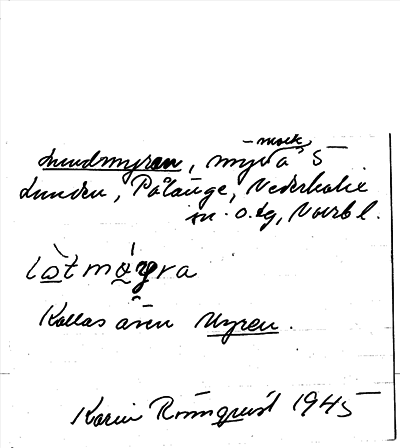 - mosk
Lundmyran, myra S
Lunden, Pålänge, Nederkalix
sn. o. tg, Norrb l.
Kallas även Myren.
Karin Rönnquist 1945